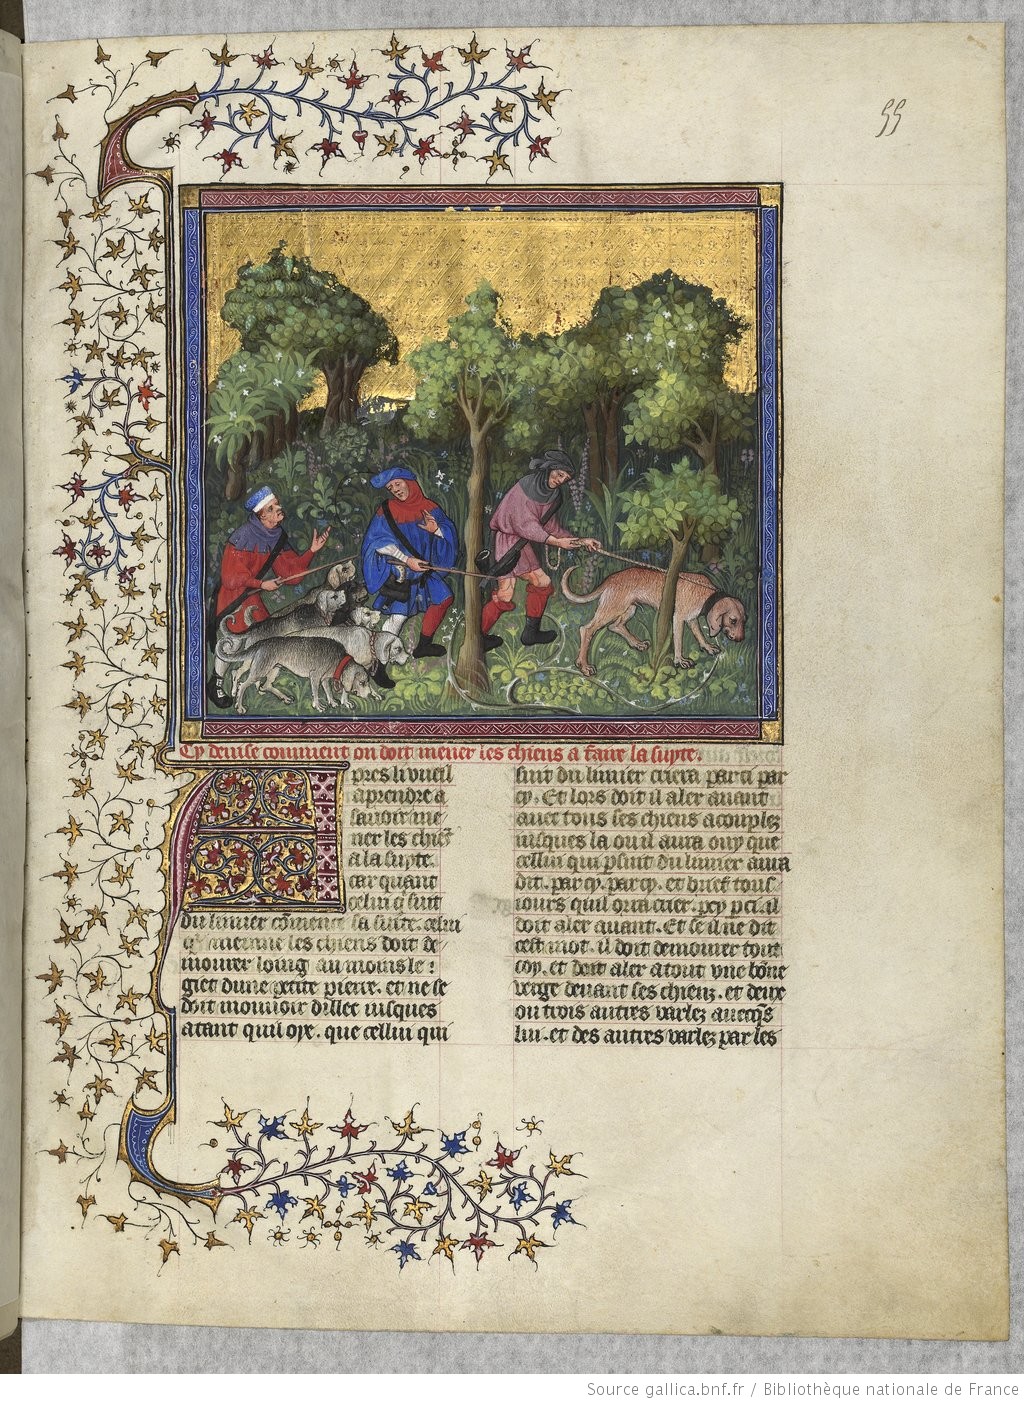 55
Cy deuise comment on doit mener les chiens a faire la suyte.
Apres li vueil
aprendre a
sauoir me
ner les chiēs
a la suyte.
car quant
celui q̄ suit
du limier cōmence sa suite. celui
q̄ menme les chiens doit de
mourer loing au moins le
giet dune petite pierre. et ne se
doit mouuoir dillec iusques
atant quil oye. que cellui qui
suit du limier criera par ci par
cy. Et lors doit il aler auant
auec tous les chiens acouplez
iusques la ou il aura ouy que
cellui qui psuit du limier aura
dit. par cy. par cy. et brief tous
iours quil orra crier. pcy pci. il
doit aler auant. Et se il ne dit
cest mot. il doit demourer tout
coy. et doit aler atout vne bōne
verge deuant ses chiens. et deux
ou trois autres varlez auecq̄s
lui. et des autres varlez par les
Source gallica.bnf.fr / Bibliothèque nationale de France